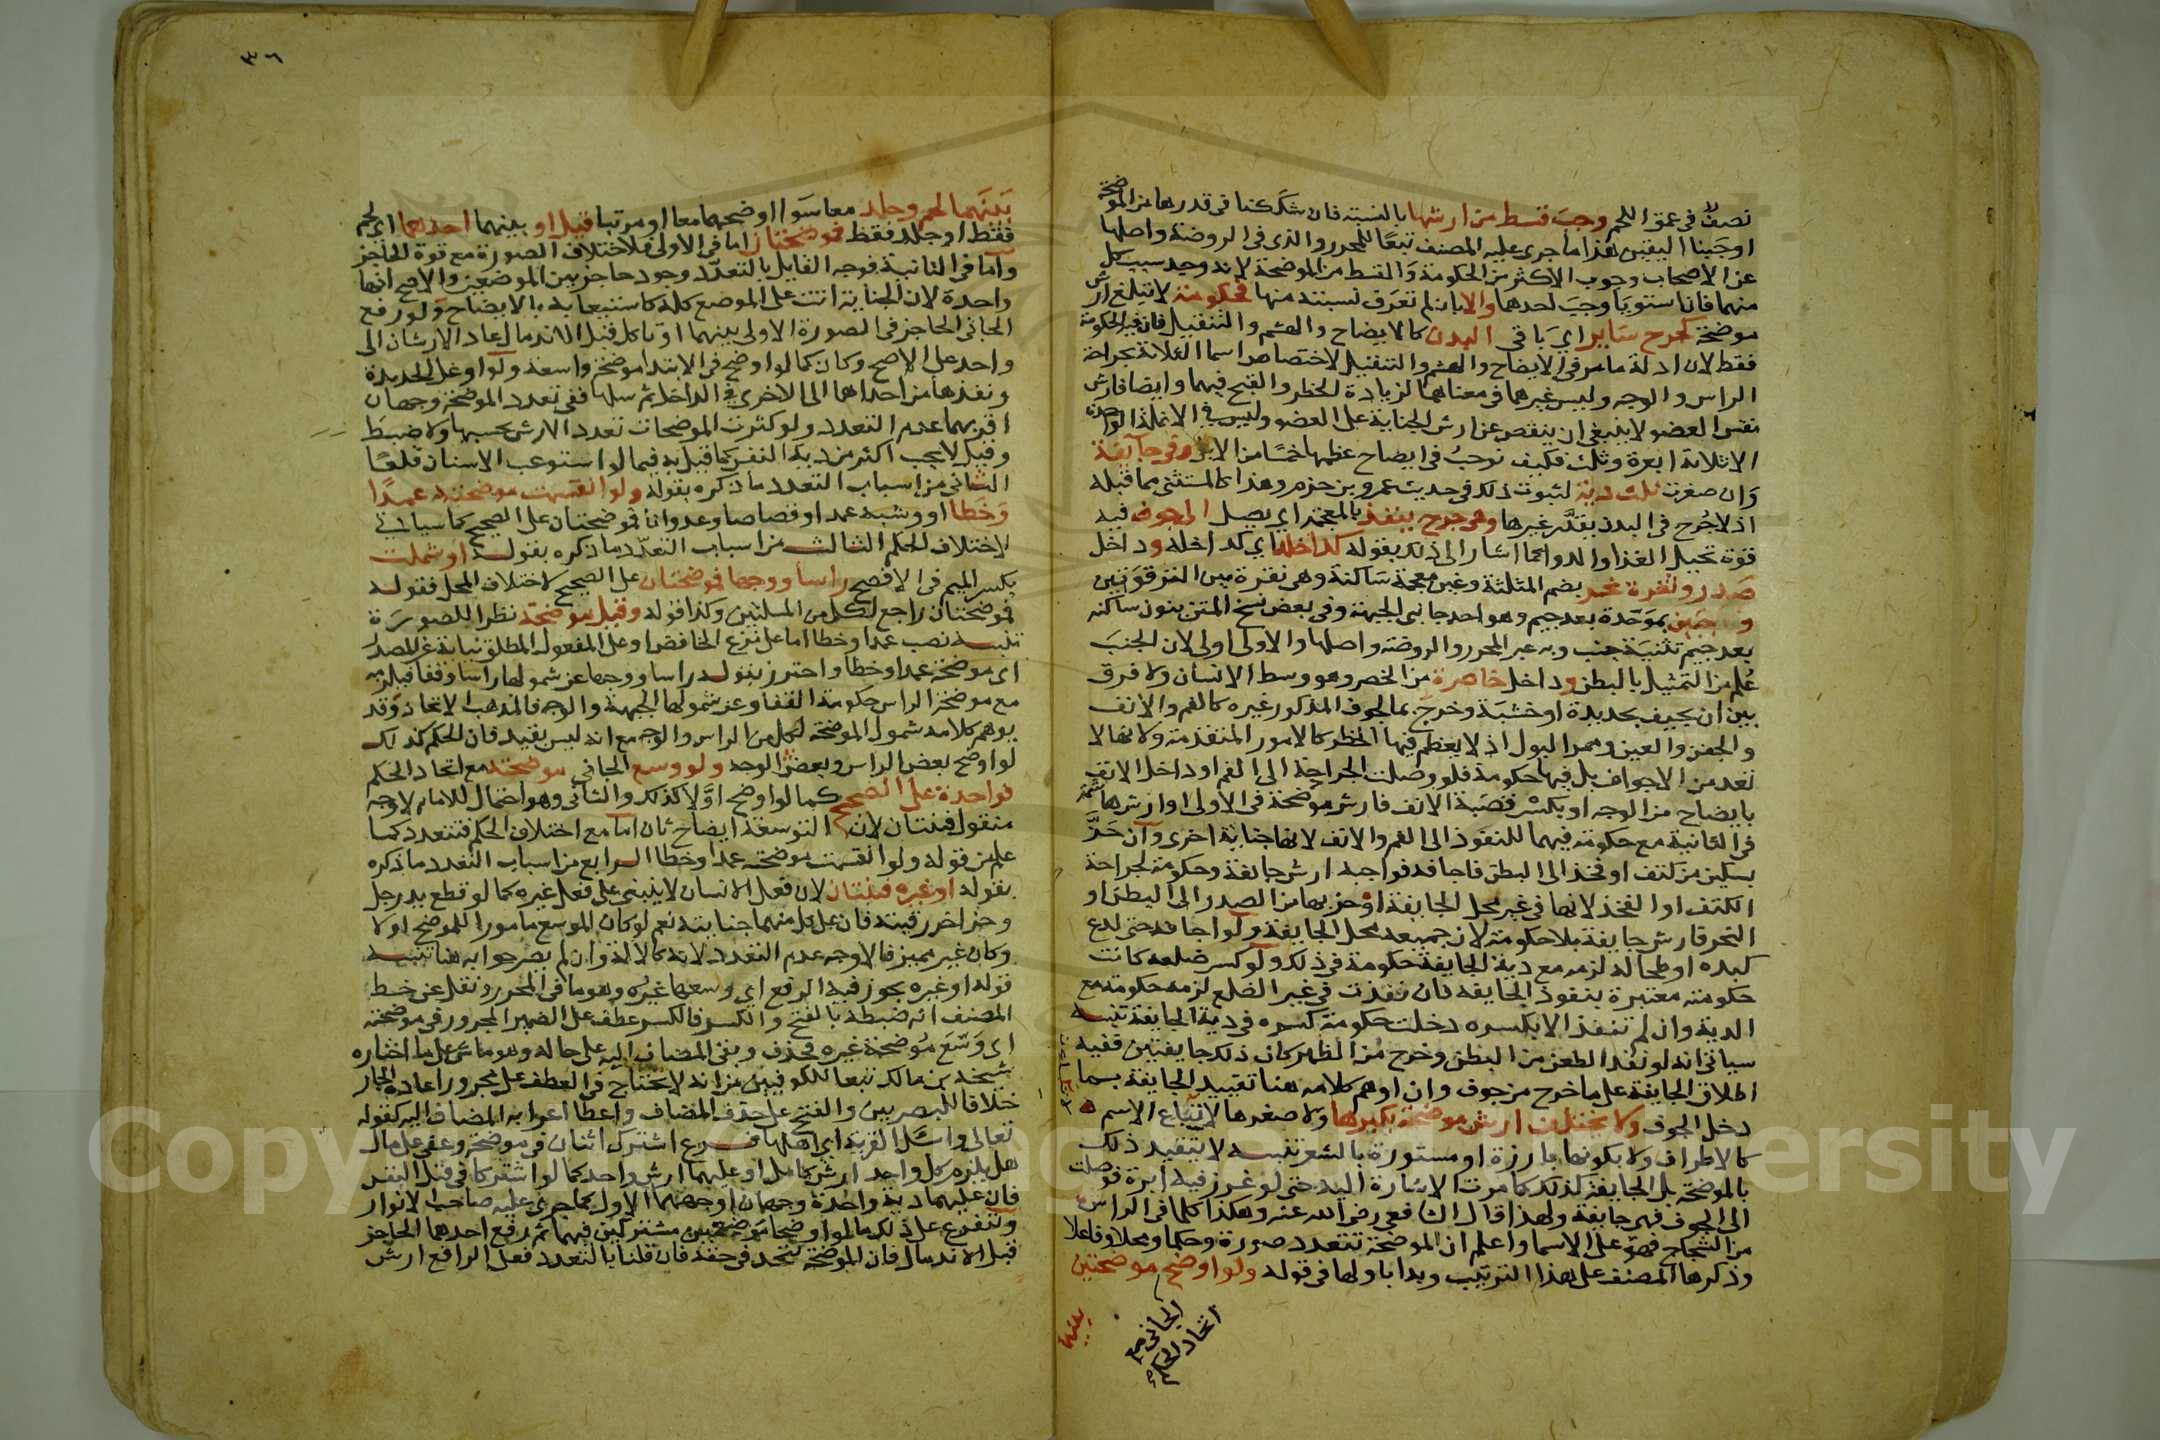 نصفٌ في عمق اللحم وجب قسط من ارشها بالنسبة فان شككنا في قدرها من الموضحة
اوجبنا اليقين هذا ما جرى عليه المصنف تبعًا للمحرر والذي في الروضة واصلها
عن الاصحاب وجوب الاكثر من الحكومة والقسط من الموضحة لانه وجد سبب كل
منهما فان استويا وجب احدهما والا بان لم تعرف نسبته منها فحكومة لا تبلغ ارش
موضحة كجرح ساير اي باقي البدن كالايضاح والهشم والتنقيل فان فيه الحكومة
فقط لان ادلة ما مر في الايضاح والهشم والتنقيل لاختصاص اسما الثلاثة بجراحة
الراس والوجه وليس غيرهما في معناهما لزيادة الخطر والقبح فيهما وايضا فارش
نفس العضو لا ينبغي ان ينقص عن ارش الجناية على العضو وليس في الانملة الواحدة
الا ثلاثة ابعرة وثلث فكيف نوجب في ايضاح عظمها خمسًا من الابل وفي جايفة
وان صغرت ثلث دية لثبوت ذلك في حديث عمرو بن حزم وهذا كالمستثنى مما قبله
اذ لا جرح في البدن يقدَّر غيرها وهي جرح ينفذ بالمعجمة اي يصل الى جوف فيه
قوة تحيل الغذا والدوا كما اشار الى ذلك بقوله كداخل اي كداخله وداخل
صدر وثغرة نحر بضم المثلثة وغين معجمة ساكنة وهي نقرة بين الترقوتين
و جبين بموحّدة بعد جيم وهو احد جانبي الجبهة وفي بعض نسخ المتن بنون ساكنه
بعد جيم تثنية جنب وبه عبر المحرر والروضة واصلها والاولى اولى لان الجنب
عُلم من التمثيل بالبطن وداخل خاصرة من الخصر وهو وسط الانسان ولا فرق
بين ان يجيف بحديدة او خشبة وخرج بالجوف المذكور غيره كالفم والانف
والجفن والعين وممر البول اذ لا يعظم فيها الخطر كالامور المتقدمة ولانها لا
تعد من الاجواف بل فيها حكومة فلو وصلت الجراحة الى الفم او داخل الانف
بايضاح من الوجه او بكسر قصبة الانف فارش موضحة في الاولى او ارش هاشمة
في الثانية مع حكومة فيهما للنفوذ الى الفم والانف لانها جناية اخرى وان حزَّ
بسكين من كتف او فخذ الى البطن فاجافه فواجبه ارش جايفة وحكومة لجراحة
الكتف او الفخذ لانها في غير محل الجايفة او حز بها من الصدر الى البطن او
النحر فارش جايفة بلا حكومة لان جميعه محل الجايفة ولو اجافه حتى لدع
كبده او طحاله لزمه مع دية الجايفة حكومة في ذلك ولو كسر ضلعه كانت
حكومته معتبرة بنفوذ الجايفة فان نفذت في غير الضلع لزمه حكومته مع
الدية وان لم تنفذ الا بكسره دخلت حكومة كسره في دية الجايفة تنبيه
سياتي انه لو نفذ الطعن من البطن وخرج من الظهر كان ذلك جايفتين ففيه
اطلاق الجايفة على ما خرج من جوف وان اوهم كلامه هنا تقييد الجايفة بما
دخل الجوف ولا يختلف ارش موضحة بكبرها ولا صغرها لاتباع الاسم
كالاطراف ولا بكونها بارزة او مستورة بالشعر تنبيه لا يتقيد ذلك
بالموضحة بل الجايفة كذلك كما مرت الاشارة اليه حتى لو غرز فيه ابرة فوصلت
الى الجوف فهي جايفة ولهذا قال الشافعي رضي الله عنه وهكذا كلما في الراس
من الشجاج فهو على الاسما واعلم ان الموضحة تتعدد صورة وحكما ومحلا وفاعلا
وذكرها المصنف على هذا الترتيب وبدا باولها في قوله ولو اوضح موضحتين
الجاني مع
اتحاد الحكم
بينهما
٣٦
بينهما لحم وجلد معا سوا اوضحهما معا او مرتبا قيل او بينهما احدهما اي لحم
فقط او جلد فقط فموضحتان اما في الاولى فلاختلاف الصورة مع قوة الحاجز
واما في الثانية فوجه القايل بالتعدّد وجود حاجز بين الموضعين والاصح انها
واحدة لان الجناية اتت على الموضع كله كاستيعابه بالايضاح ولو رفع
الجاني الحاجز في الصورة الاولى بينهما او تاكل قبل الاندمال عاد الارشان الى
واحد على الاصح وكان كما لو اوضح في الابتدا موضحة واسعة ولو اوغل الحديدة
ونفذها من احداهما الى الاخرى في الداخل ثم سلها ففي تعدد الموضحة وجهان
اقربهما عدم التعدد ولو كثرت الموضحات تعدد الارش بحسبها ولا ضبط
وقيل لا يجب اكثر من دية النفس كما قيل به فيما لو استوعب الاسنان قلعًا
الثاني من اسباب التعدد ما ذكره بقوله ولو انقسمت موضحته عمدًا
وخطا او وشبه عمد او قصاصا وعدوانا فموضحتان على الصحيح كما سياتي
لاختلاف الحكم الثالث من اسباب التعدّد ما ذكره بقوله او شملت
بكسر الميم في الافصح راسا ووجها فموضحتان على الصحيح لاختلاف المحل فقوله
فموضحتان راجع لكل من المسئلتين وكذا قوله وقيل موضحة نظرا للصورة
تنبيه نصب عمدا وخطا اما على نزع الخافض او على المفعول المطلق نيابة عن المصدر
اي موضحة عمدا وخطا واحترز بقوله راسا ووجها عن شمولها راسا وقفا فيلزمه
مع موضحة الراس حكومة القفا وعن شمولها الجبهة والوجه فالمذهب الاتحاد وقد
يوهم كلامه شمول الموضحة لكل من الراس والوجه مع انه ليس بقيد فان الحكم كذلك
لو اوضح بعض الراس وبعض الوجه ولو وسع الجاني موضحته مع اتحاد الحكم
فواحدة على الصحيح كما لو اوضح اوَّلا كذلك والثاني وهو احتمال للامام لا وجه
منقول ثنتان لان التوسعة ايضاح ثان اما مع اختلاف الحكم فتتعدد كما
علم من قوله ولو انقسمت موضحته عمدا وخطا الرابع من اسباب التعدد ما ذكره
بقوله او غيره فثنتان لان فعل الانسان لا ينبني على فعل غيره كما لو قطع يد رجل
وحز اخر رقبته فان على كل منهما جنايته نعم لو كان الموسع مامورا للموضح اولا
وكان غير مميز فالاوجه عدم التعدد لانه كالالة وان لم يصرحوا به هنا تنبيه
قوله او غيره يجوز فيه الرفع اي وسعها غيره وهو ما في المحرر ونقل عن خط
المصنف انه ضبطه بالفتح والكسر فالكسر عطف على الضمير المجرور في موضحته
اي وسّع مُوضحة غيره فحذف وبقى المضاف اليه على حاله وهو ماش على ما اختاره
شيخه بن مالك تبعا للكوفيين من انه لا يحتاج في العطف على مجرور اعادة الجار
خلافا للبصريين والفتح على حذف المضاف واعطا اعرابه المضاف اليه كقوله
تعالى واسئل القرية اي اهلها فرع اشترك اثنان في موضحة وعفى على مال
هل يلزم كل واحد ارش كامل او عليهما ارش واحد كما لو اشتركا في قتل النفس
فان عليهما دية واحدة وجهان اوجههما الاول كما جرى عليه صاحب الانوار
وتتفرع على ذلك ما لو اوضحا موضحتين مشتركين فيهما ثم رفع احدهما الحاجز
قبل الاندمال فان الموضحة تتحد في حقه فان قلنا بالتعدد فعل الرافع ارش